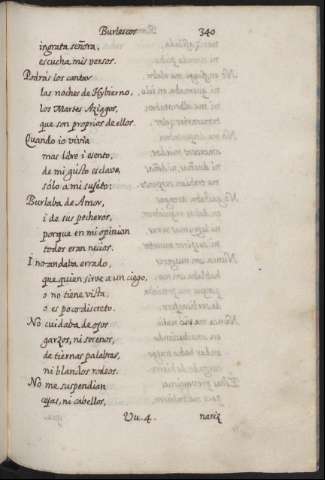 Burlescos 340
ingrata señora,
escucha mis versos.
Podrás los cantar
las noches de Hybierno,
los Martes Aziagos,
que son proprios de ellos.
Quando io viuia
mas libre i esento,
de mi gusto esclauo,
sólo a mi sujeto;
Burlaba de Amor,
i de sus pecheros,
porque en mi opinion
todos eran necios.
I no andaba errado,
que quien sirve a un ciego,
o no tiene vista,
o es poco discreto.
No cuidaba de ojos
garzos, ni serenos,
de tiernas palabras,
ni blandos rodeos.
No me suspendian
cejas, ni cabellos,
Uu.4. nariz